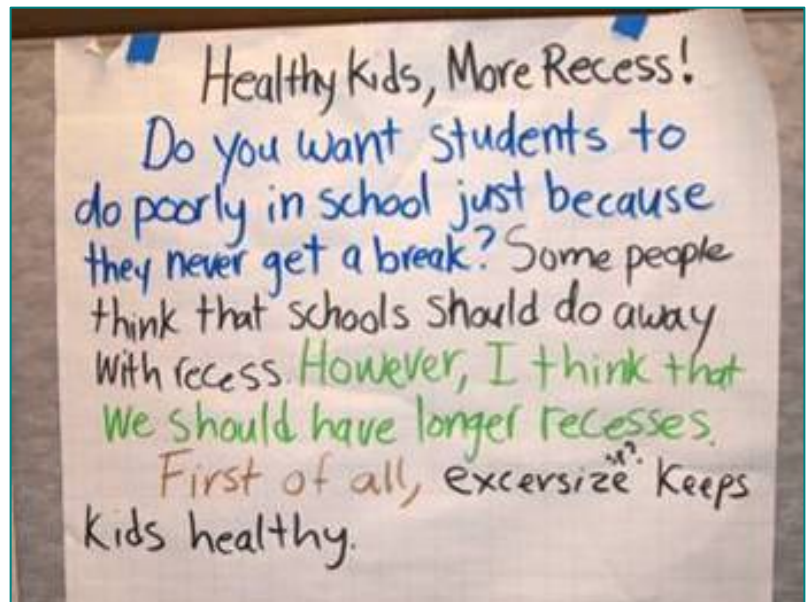 Healthy Kids, More Recess!
Do you want students to
do poorly in school just because
they never get a break? Some people
think that schools should do away
with recess. However, I think that
We should have longer recesses.
First of all, excersize keeps
kids healthy.